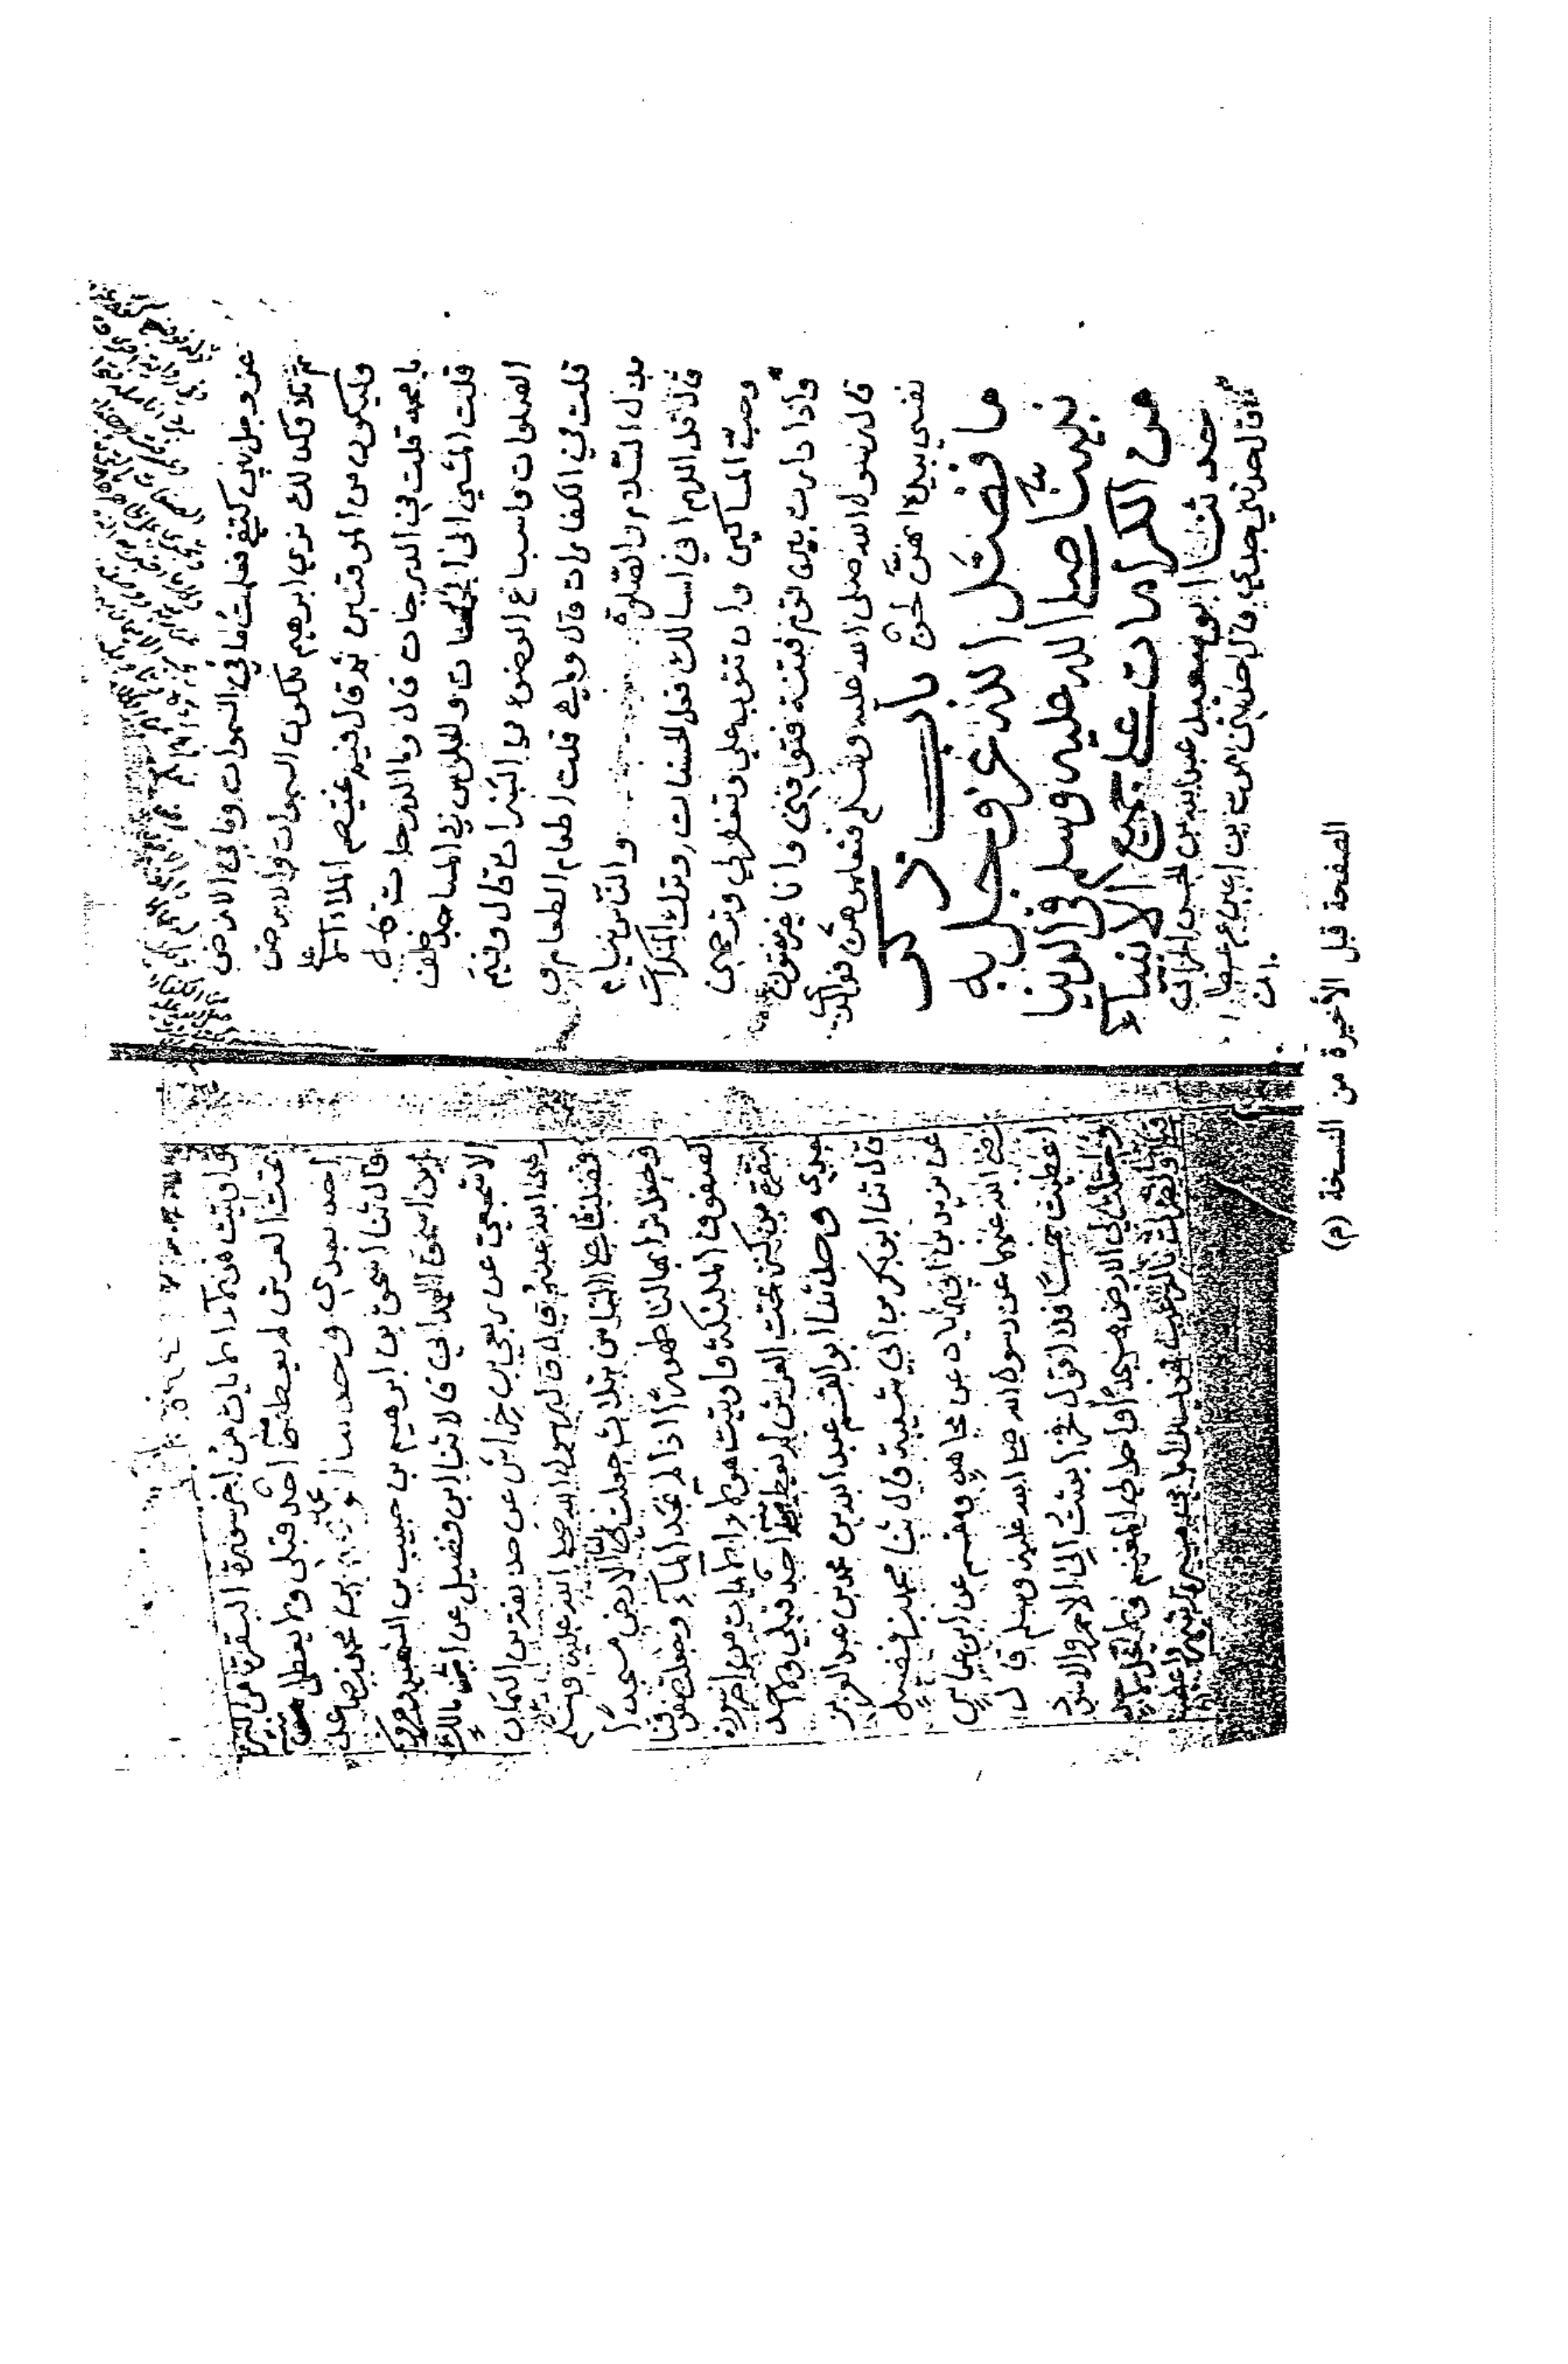 عز وجل بين كتفي فعلمت ما في السموات وما في الارض
ثم تلا وكذلك نري ابرهيم ملكوت السموات والارض
وليكون من الموقنين ثم قال فيم يختصم الملأ الاعلى
يا محمد قلت في الدرجات قال وما الدرجات قال
قلت المشي الى الجمعات والجلوس في المساجد خلف
الصلوات واسباغ الوضوء في السبرات قال وفيم
قلت في الكفارات قال وما هي قلت اطعام الطعام و
بذل السلام والصلوة والناس نيام
قال قل اللهم اني اسالك فعل الحسنات وترك المنكرات
وحب المساكين وان تتوب علي وتغفر لي وترحمني
واذا داريت بين قوم فتنة فتوفني وانا غير مفتون
قال رسول الله صلى الله عليه وسلم فتعلموهن فوالذي
نفسي بيده انهن لحق باب ذكر
ما فضل الله عز وجل به
نبينا صلى الله عليه وسلم في الدنيا
من الكرامات على جميع الانبياء
حدثنا ابو سعيد عبد الله بن الحسن الحراني
قال حدثني جدي قال حدثني موسى بن اعين عن عطا
بن
واوتيت هولاء الايات من اخر سورة البقرة من كنز
تحت العرش لم يعط منه احد قبلي ولا يعطى منه
احد بعدي وحدثنا ابو بن محمد بن صاعد
قال ثنا اسحق بن ابرهيم بن حبيب بن الشهيد
ابن اسحق الهمداني قالا ثنا ابن فضيل عن ابي مالك
الاشجعي عن ربعي بن خراش عن حذيفة بن اليمان
رضي الله عنه قال قال رسول الله صلى الله عليه وسلم
فضلنا على الناس بثلاث جعلت لنا الارض مسجدا
وجعل ترابها لنا طهورا اذا لم نجد الماء وجعلت صفوفنا
كصفوف الملئكة واوتيت هولاء الايات من اخر سورة
البقرة من كنز تحت العرش لم يعط منه احد قبلي ولا احد
بعدي وحدثنا ابو القسم عبد الله بن محمد بن عبد العزيز
قال ثنا ابو بكر بن أبي شيبة قال ثنا محمد بن فضيل
عن يزيد بن ابي زياد عن مجاهد ومقسم عن ابن عباس
رضي الله عنهما عن رسول الله صلى الله عليه وسلم قال
اعطيت خمسا فلا اقول فخرا بعثت الى الاحمر والاسود
وجعلت لي الارض مسجدا واحل لي المغنم ولم يحل لاحد
قبلي ونصرت بالرعب فهو يسير امامي مسيرة شهر واعطيت
الصفحة قبل الأخيرة من النسخة (م)